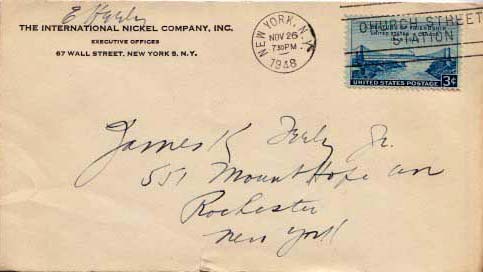 E
THE INTERNATIONAL NICKEL COMPANY, INC.
EXECUTIVE OFFICES
67 WALL STREET, NEW YORK 5, N.Y.
NEW YORK, N.Y.
NOV 26
7 30 PM
1948
CHURCH STREET
STATION
UNITED STATES POSTAGE 3¢
James K Jr.
551 Mount Hope Ave
Rochester
New York